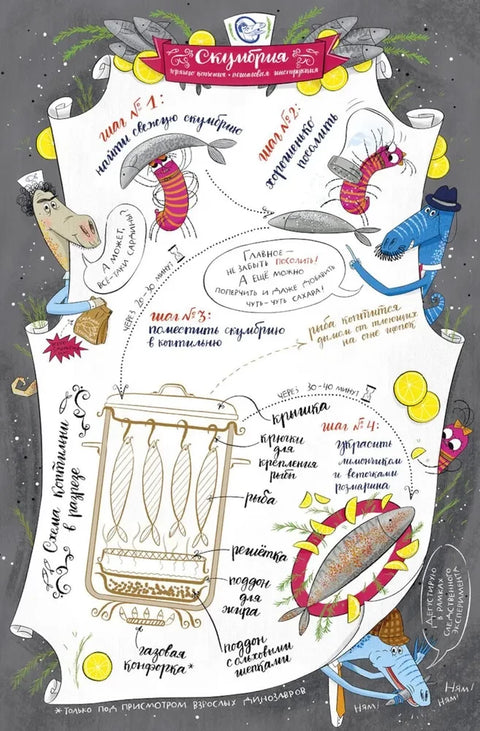 Скумбрия
горячего копчения • пошаговая инструкция
шаг № 1:
найти свежую скумбрию
шаг №2:
хорошенько
посолить
А может,
всё-таки сардины?
Главное –
не забыть посолить!
А ещё можно
поперчить и даже добавить
чуть-чуть сахара!
через 20-30 минут
шаг №3:
поместить скумбрию
в коптильню
рыба коптится
дымом от тлеющих
на огне щепок
через 30-40 минут
Схема коптильни
в разрезе
крышка
крючки для
крепления
рыбы
рыба
решётка
поддон
для
жира
поддон
с ольховыми
щепками
газовая
конфорка*
шаг № 4:
украсить
лимончиком
и веточками
розмарина
Дегустирую
в рамках
следственного
эксперимента
Ням!
Ням!
Ням!
*только под присмотром взрослых динозавров